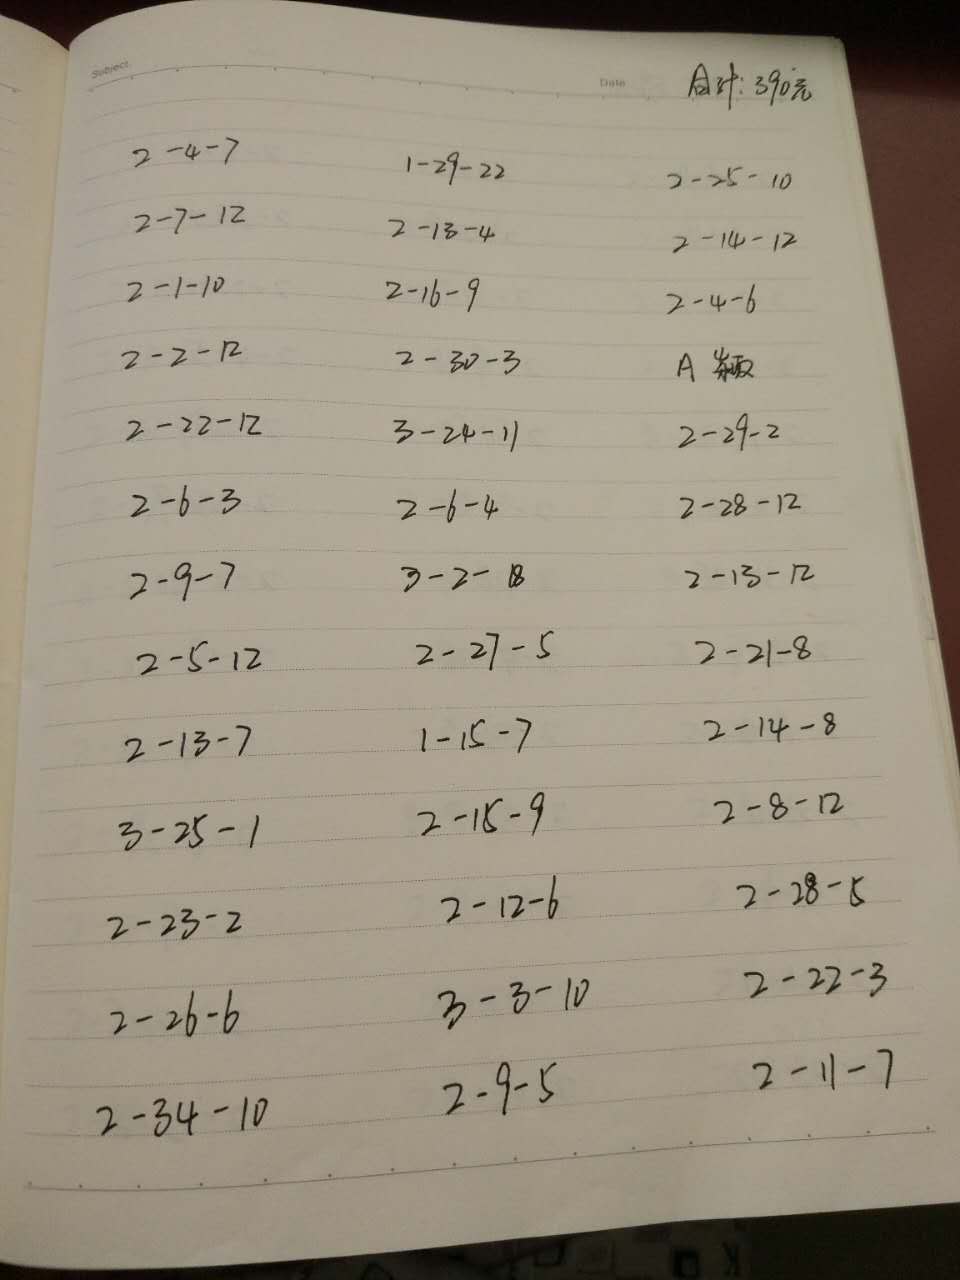 Subject
Date
合计:390元
2-4-7
2-7-12
2-1-10
2-2-12
2-22-12
2-6-3
2-9-7
2-5-12
2-13-7
3-25-1
2-23-2
2-26-6
2-34-10
1-29-22
2-13-4
2-16-9
2-30-3
3-24-11
2-6-4
3-2-18
2-27-5
1-15-7
2-15-9
2-12-6
3-3-10
2-9-5
2-25-10
2-14-12
2-4-6
A
2-29-2
2-28-12
2-13-12
2-21-8
2-14-8
2-8-12
2-28-5
2-22-3
2-11-7